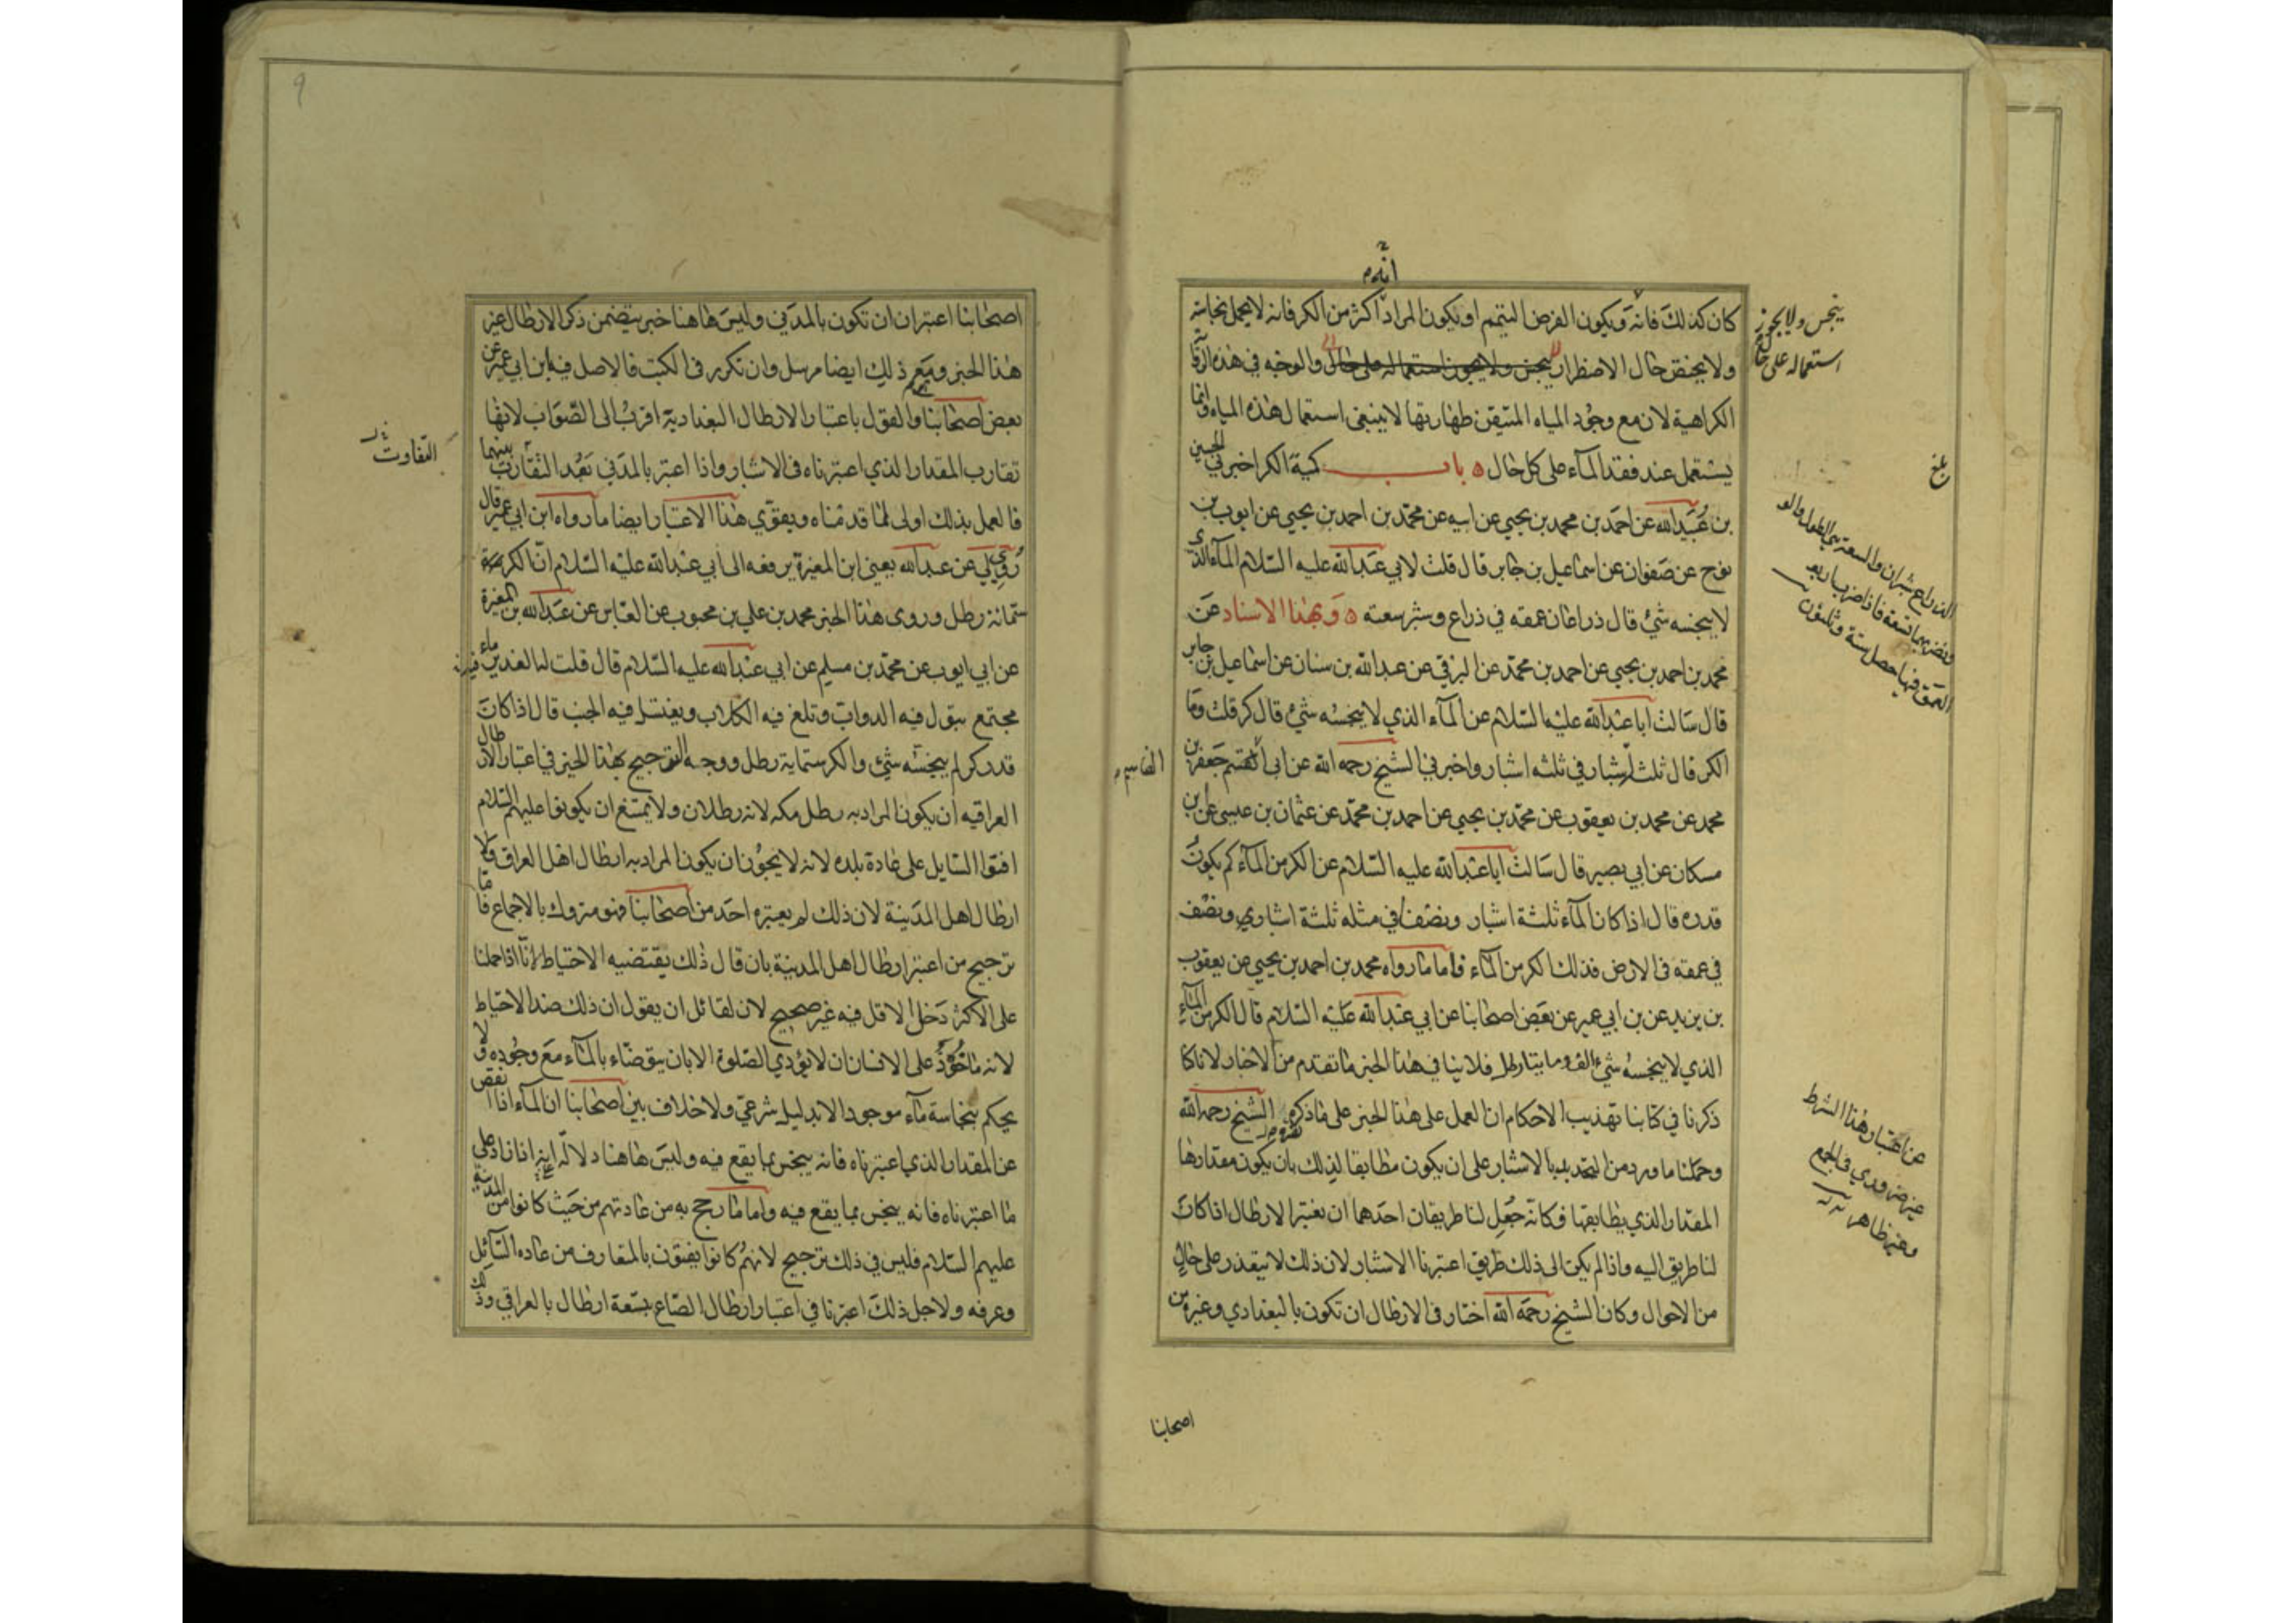 انه م
كان كذلك فانه ويكون الفرض التيمم او يكون المراد اكثر من الكر فانه لا يحمل نجاسة
ولا يختص حال الاضطرار ينجس ولا يجوز استعماله على حال والوجه في هذه
الكراهية لان مع وجود المياه المتيقن طهارتها لا ينبغي استعمال هذه المياه وانما
يستعمل عند فقد الماء على كل حال ه باب كمية الكر اخبرني الحسين
بن عبيد الله عن احمد بن محمد بن يحيى عن ابيه عن محمد بن احمد بن يحيى عن ايوب بن
نوح عن صفوان عن اسماعيل بن جابر قال قلت لابي عبد الله عليه السلام الماء الذي
لا ينجسه شئ قال ذراعان عمقه في ذراع وشبر سعته ه وبهذا الاسناد عن
محمد بن احمد بن يحيى عن احمد بن محمد عن البرقي عن عبد الله بن سنان عن اسماعيل بن جابر
قال سالت ابا عبد الله عليه السلام عن الماء الذي لا ينجسه شئ قال كر قلت وما
الكر قال ثلثة اشبار في ثلثه اشبار واخبرني الشيخ رحمه الله عن ابي القسم جعفر بن
محمد عن محمد بن يعقوب عن محمد بن يحيى عن احمد بن محمد عن عثمان بن عيسى عن ابن
مسكان عن ابي بصير قال سالت ابا عبد الله عليه السلام عن الكر من الماء كم يكون
قدره قال اذا كان الماء ثلثة اشبار ونصفا في مثله ثلثة اشبار ونصف
في عمقه في الارض فذلك الكر من الماء فاما ما رواه محمد بن احمد بن يحيى عن يعقوب
بن يزيد عن بن ابي عمير عن بعض اصحابنا عن ابي عبد الله عليه السلام قال الكر من الماء
الذي لا ينجسه شئ الف وما يتا رطل فلا ينافي هذا الخبر ما تقدم من الاخبار لانا كنا
ذكرنا في كتابنا تهذيب الاحكام ان العمل على هذا الخبر على ما ذكره الشيخ رحمه الله
وحملنا ما ورد من التحديد بالاشبار على ان يكون مطابقا لذلك بان يكون مقدارها
المقدار الذي يطابقها فكانه جعل لنا طريقان احدهما ان نعتبر الارطال اذا كان
لنا طريق اليه واذا لم يكن الى ذلك طريق اعتبرنا الاشبار لان ذلك لا يتعذر على حال
من الاحوال وكان الشيخ رحمه الله اختار في الارطال ان تكون بالبغدادي وغيره من
اصحابنا
ينجس ولا يجوز
استعماله على حال
بلغ
الذراع شبران والسعة هي الطول والعرض
العمق فيها حصل ستة وثلثون
القاسم م
عن اعتبار هذا الشرط
غير ضروري في الجمع
وغير ظاهر
٩
اصحابنا اعتبر ان ان تكون بالمدني وليس هاهنا خبر يتضمن ذكر الارطال غير
هذا الخبر ومع ذلك ايضا مرسل وان تكرر في الكتب فالاصل فيه ابن ابي عمير عن
بعض اصحابنا والقول باعتبار الارطال البغدادية اقرب الى الصواب لانها
تقارب المقدار الذي اعتبرناه في الاشبار واذا اعتبر بالمدني بعد التقارب بينهما
فالعمل بذلك اولى لما قدمناه ويقوي هذا الاعتبار ايضا ما رواه ابن ابي عمير قال
روي لي عن عبد الله يعني ابن المغيرة يرفعه الى ابي عبد الله عليه السلام ان الكر
ستمائة رطل وروى هذا الخبر محمد بن علي بن محبوب عن العباس عن عبد الله بن المغيرة
عن ابي ايوب عن محمد بن مسلم عن ابي عبد الله عليه السلام قال قلت له الغدير فيه ماء
مجتمع يبول فيه الدواب وتلغ فيه الكلاب ويغتسل فيه الجنب قال اذا كان
قدر كر لم ينجسه شئ والكر ستماية رطل ووجه الترجيح بهذا الخبر في اعتبار الارطال
العراقيه ان يكون المراد به رطل مكه لانه رطلان ولا يمتنع ان يكونوا عليهم السلام
افتوا السايل على عادة بلده لانه لا يجوز ان يكون المراد به ارطال اهل العراق ولا
ارطال اهل المدينة لان ذلك لم يعتبره احد من اصحابنا فهو متروك بالاجماع فاما
ترجيح من اعتبر ارطال اهل المدينة بان قال ذلك يقتضيه الاحتياط لانا اذا حملنا
على الاكثر دخل الاقل فيه غير صحيح لان لقائل ان يقول ان ذلك ضد الاحتياط
لانه ماخوذ على الانسان ان لا يؤدي الصلوة الا بان يتوضاء بالماء مع وجوده ولا
يحكم بنجاسة ماء موجود الا بدليل شرعي ولا خلاف بين اصحابنا ان الماء اذا نقص
عن المقدار الذي اعتبرناه فانه ينجس بما يقع فيه وليس هاهنا دلالة انه اذا زاد على
ما اعتبرناه فانه ينجس بما يقع فيه واما ما رجح به من عادتهم من حيث كانوا من المدينة
عليهم السلام فليس في ذلك ترجيح لانهم كانوا يفتون بالمتعارف من عاده السائل
وعرفه ولاجل ذلك اعتبرنا في اعتبار ارطال الصاع بتسعة ارطال بالعراقي وذلك
التفاوت